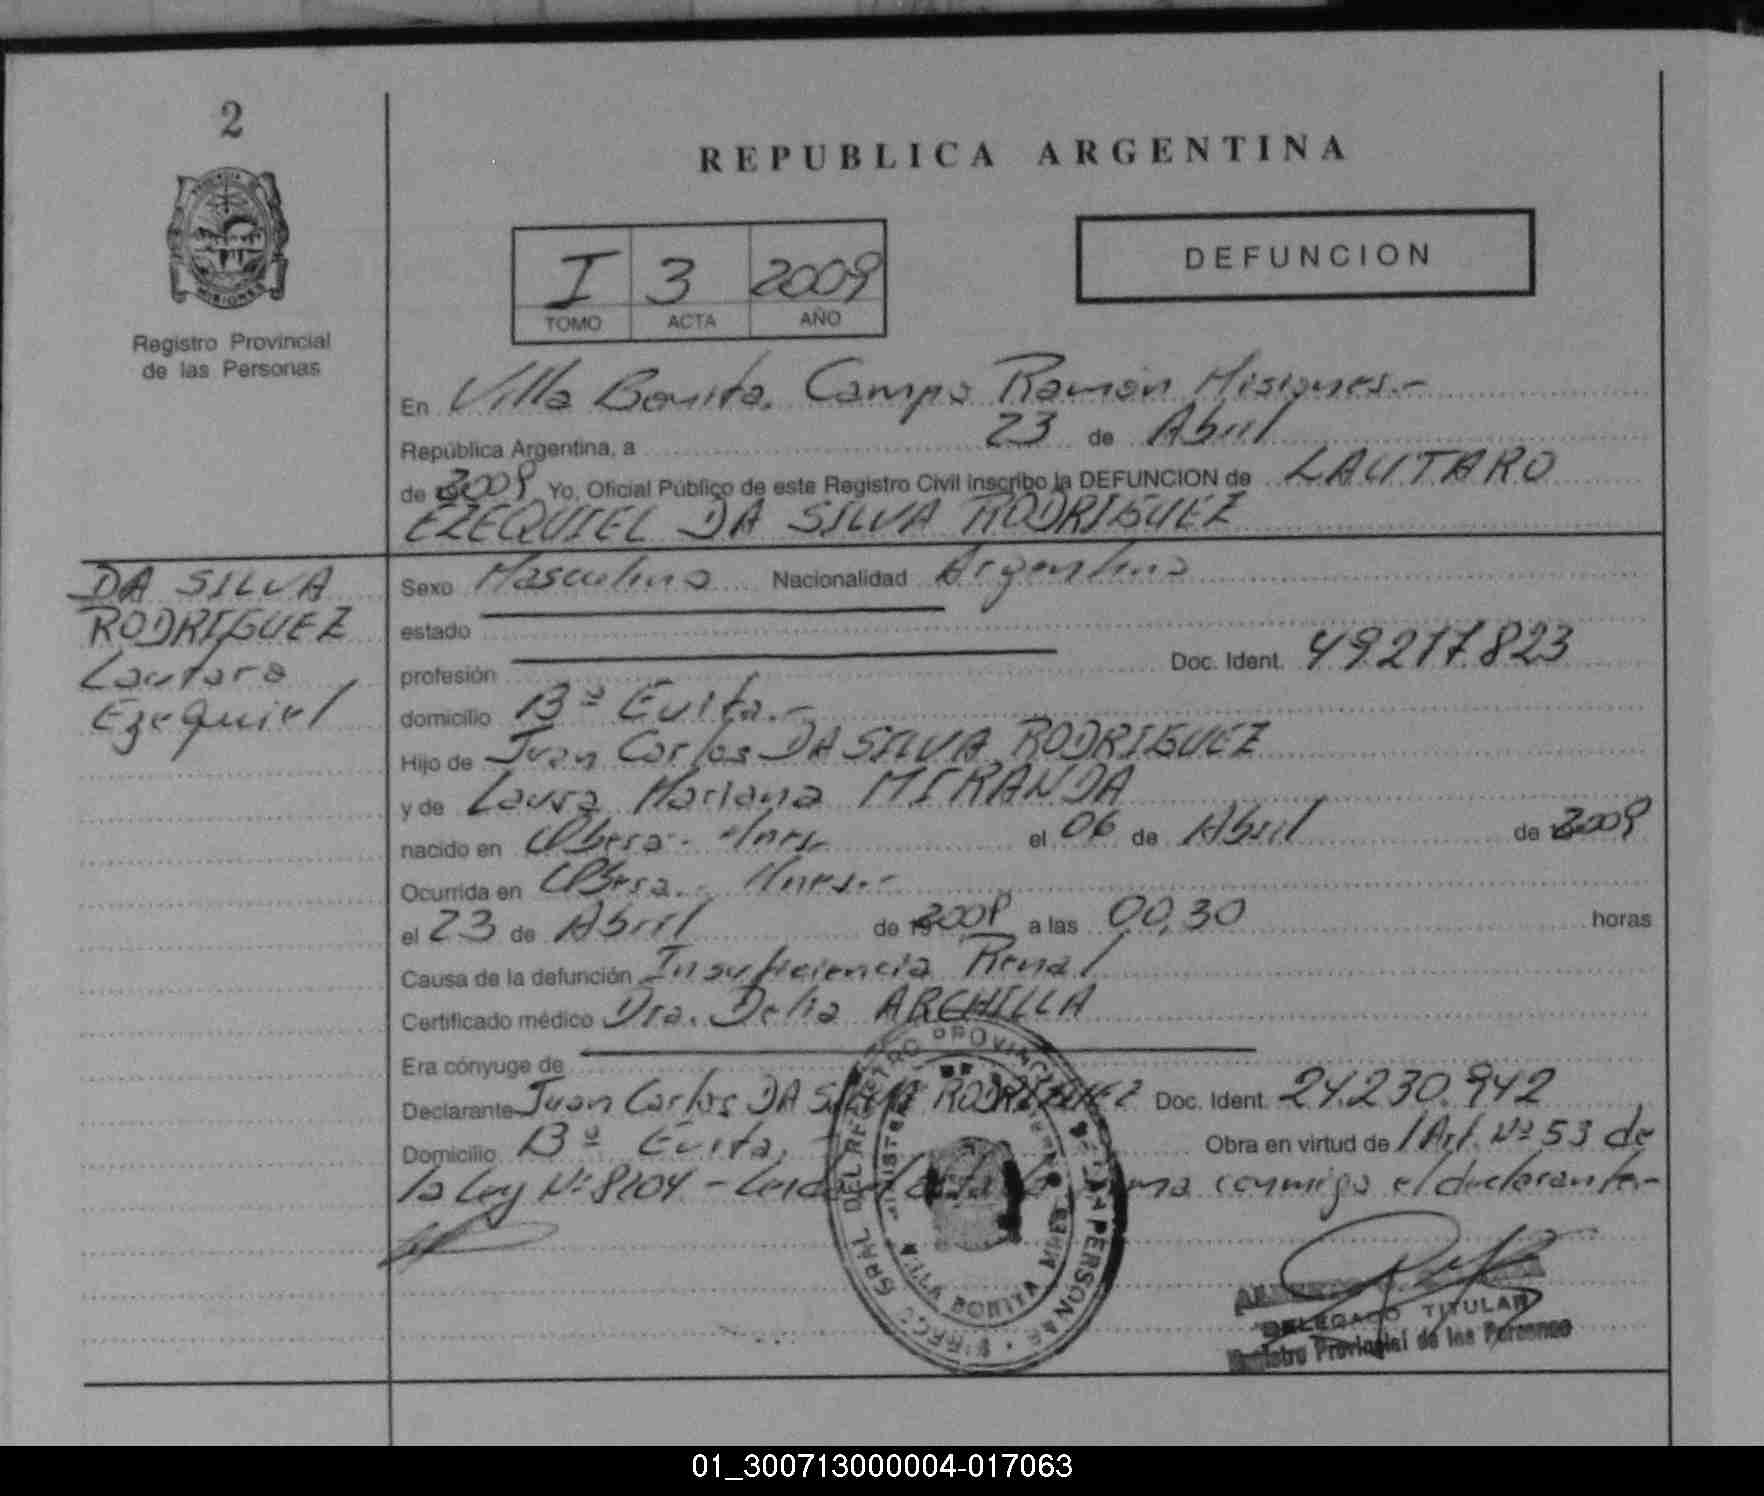 2
REPUBLICA ARGENTINA
PROVINCIA DE
MISIONES
Registro Provincial
de las Personas
I 3 2009
TOMO ACTA AÑO
DEFUNCION
En Villa Bonita. Campo Ramón Misiones.-
República Argentina, a 23 de Abril
de 2009 Yo, Oficial Público de este Registro Civil inscribo la DEFUNCION de LAUTARO
EZEQUIEL DA SILVA RODRIGUEZ
DA SILVA
RODRIGUEZ
Lautaro
Ezequiel
Sexo Masculino Nacionalidad Argentina
estado
profesión Doc. Ident. 49.217.823
domicilio Bº Evita.-
Hijo de Juan Carlos DA SILVA RODRIGUEZ
y de Laura Mariana MIRANDA
nacido en Obera.- Mnes.- el 06 de Abril de 2009
Ocurrida en Obera.- Mnes.-
el 23 de Abril de 2009 a las 00,30 horas
Causa de la defunción Insuficiencia Renal
Certificado médico Dra. Delia ARCHILLA
Era cónyuge de
Declarante Juan Carlos DA SILVA RODRIGUEZ Doc. Ident. 24.230.942
Domicilio Bº Evita, Obra en virtud de /Art. Nº 53 de
la Ley Nº 8204 - Leida el acta la firma conmigo el declarante.-
DELEGADO TITULAR
Registro Provincial de las Personas
01_300713000004-017063